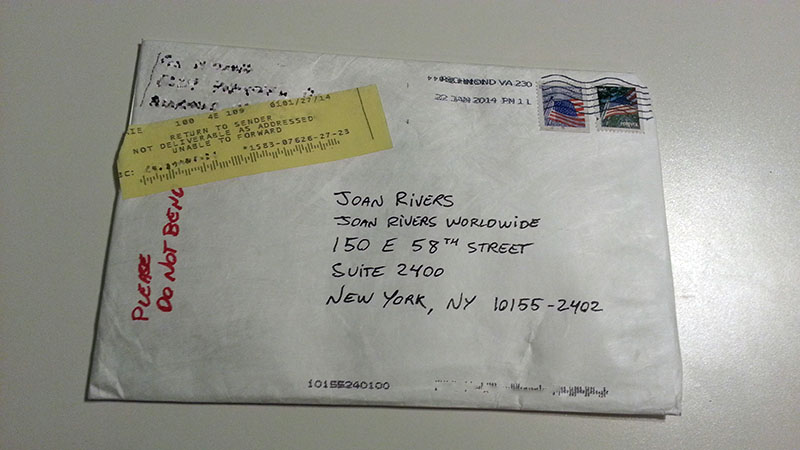 RICHMOND VA 230
22 JAN 2014 PM 1 L
100 4E 109 0101/27/14
RETURN TO SENDER
NOT DELIVERABLE AS ADDRESSED
UNABLE TO FORWARD
*1583-07626-27-23
PLEASE
DO NOT
JOAN RIVERS
JOAN RIVERS WORLDWIDE
150 E 58TH STREET
SUITE 2400
NEW YORK, NY 10155-2402
10155240100